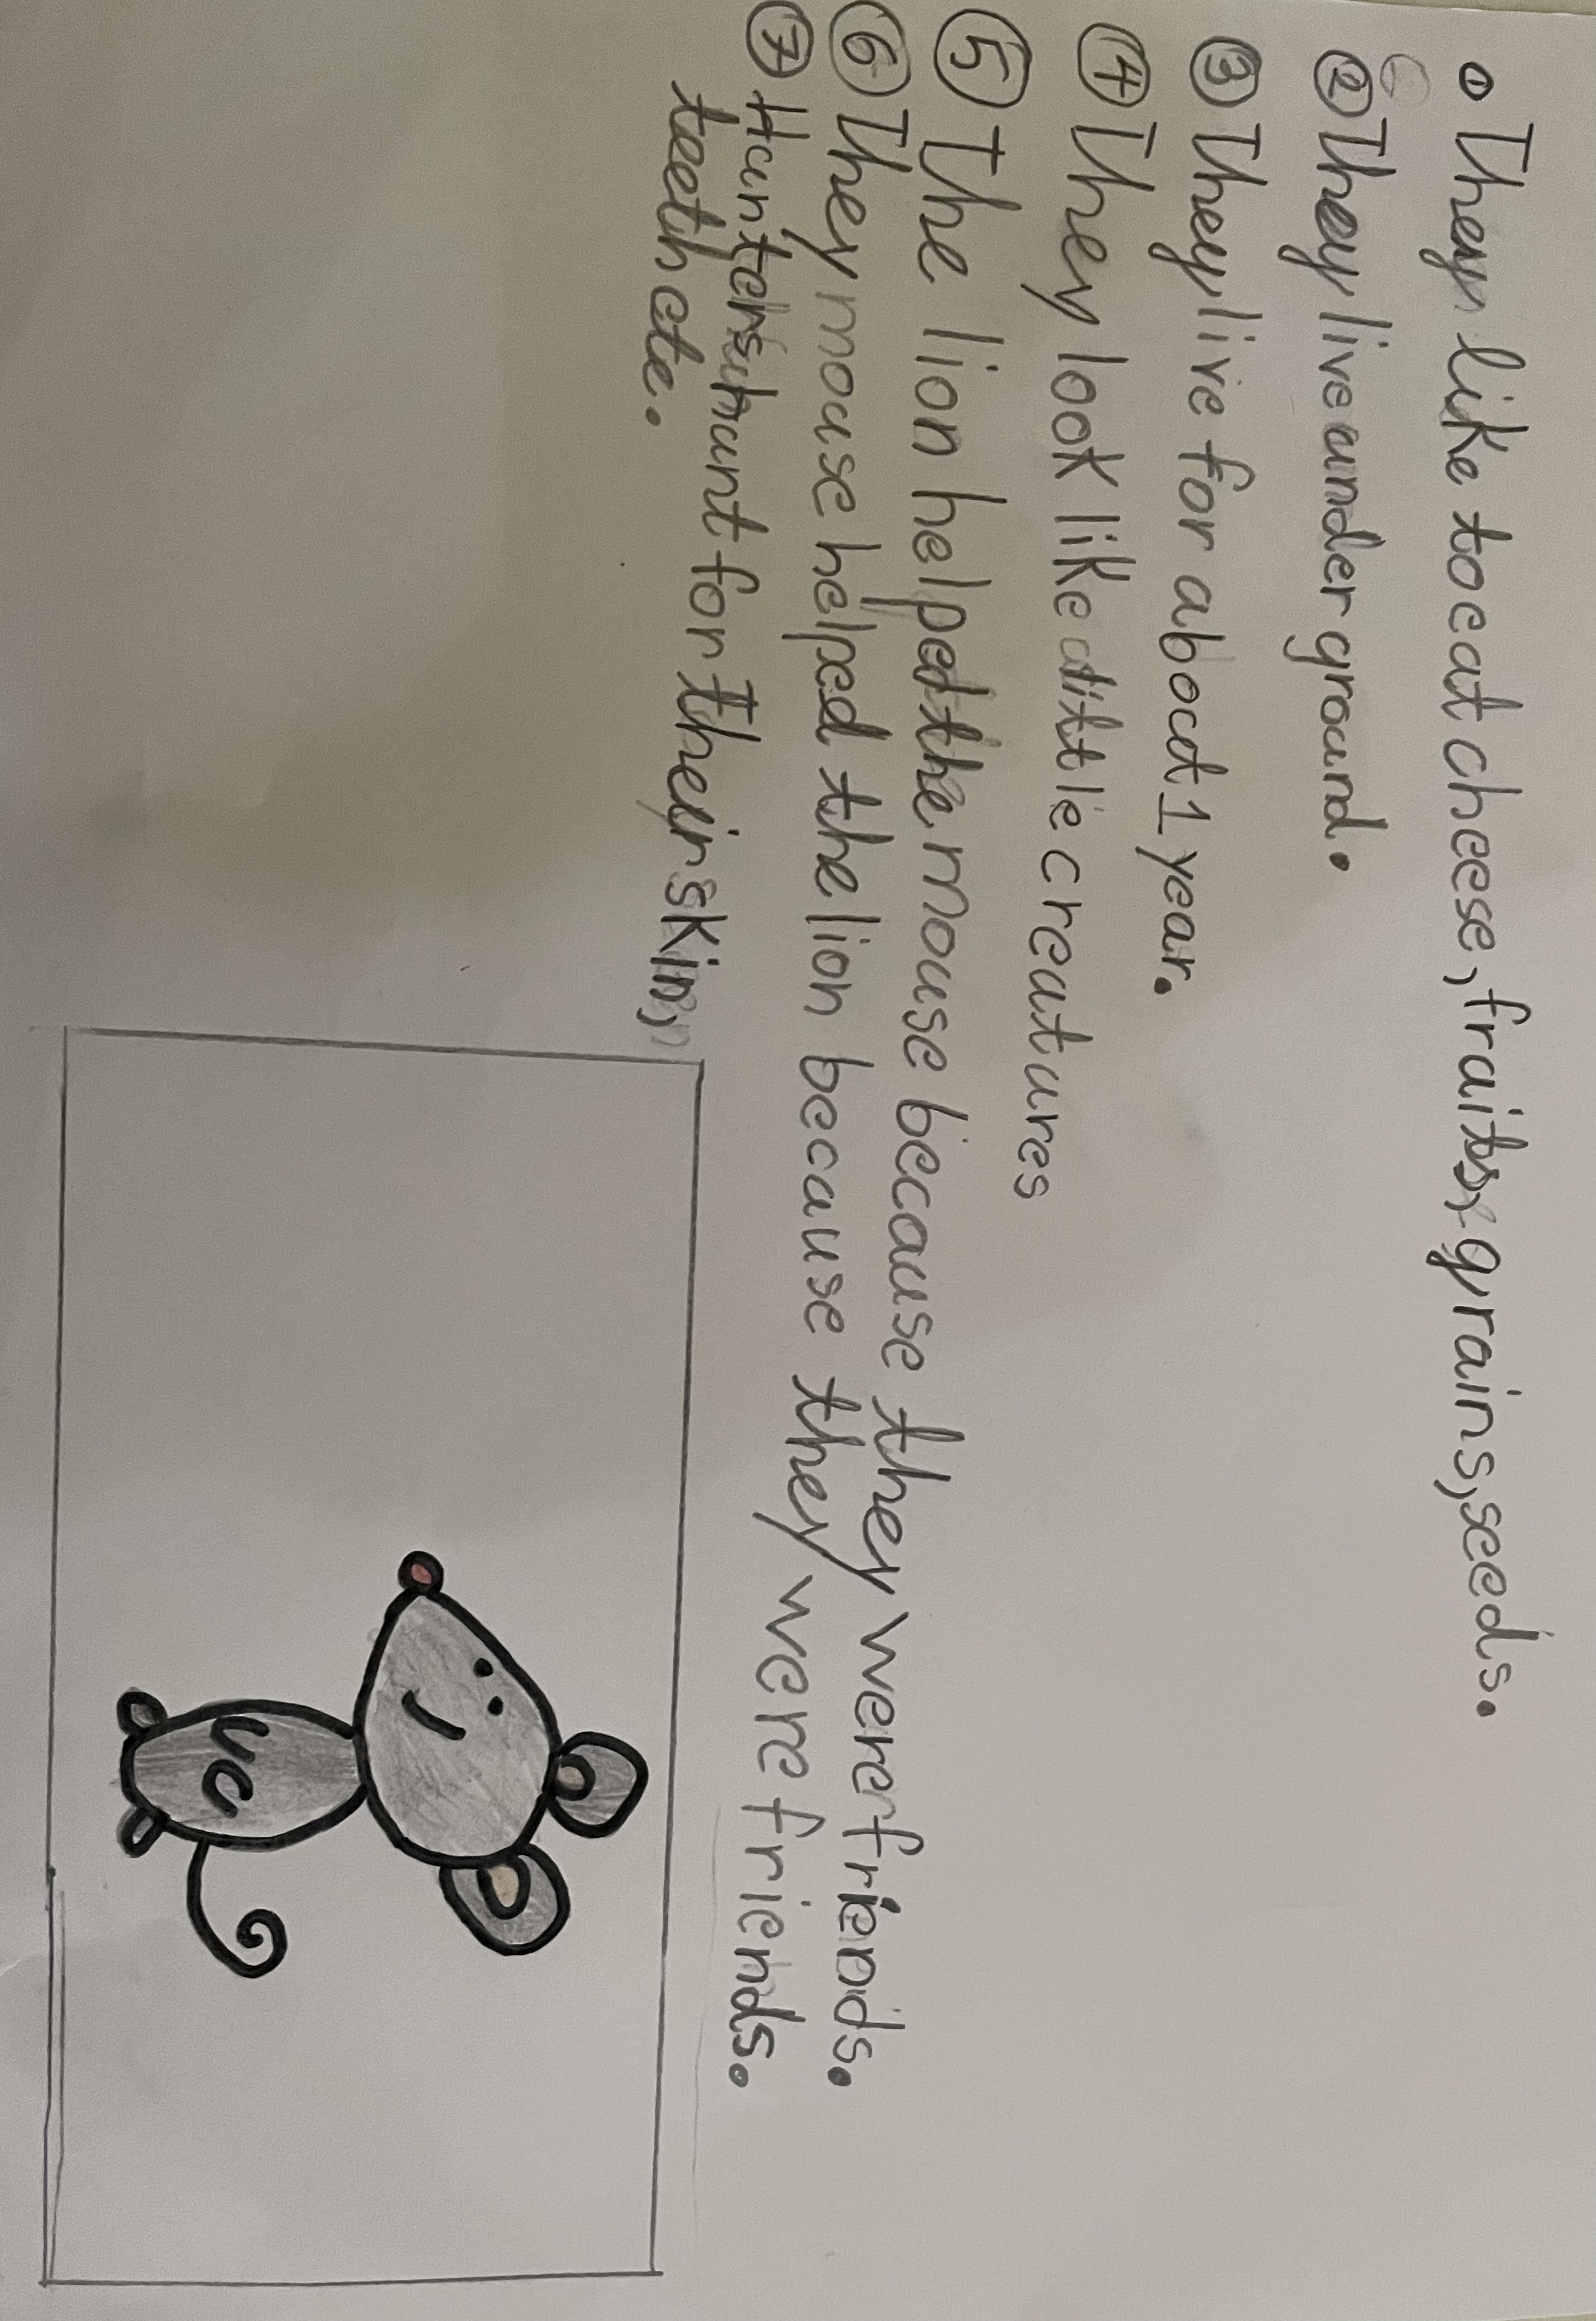 ① They like to eat cheese, fruits, grains, seeds.
② They live under ground.
③ They live for about 1 year.
④ They look like little creatures
⑤ The lion helped the mouse because they were friends.
⑥ They mouse helped the lion because they were friends.
⑦ Hunters hunt for their skin,
teeth etc.